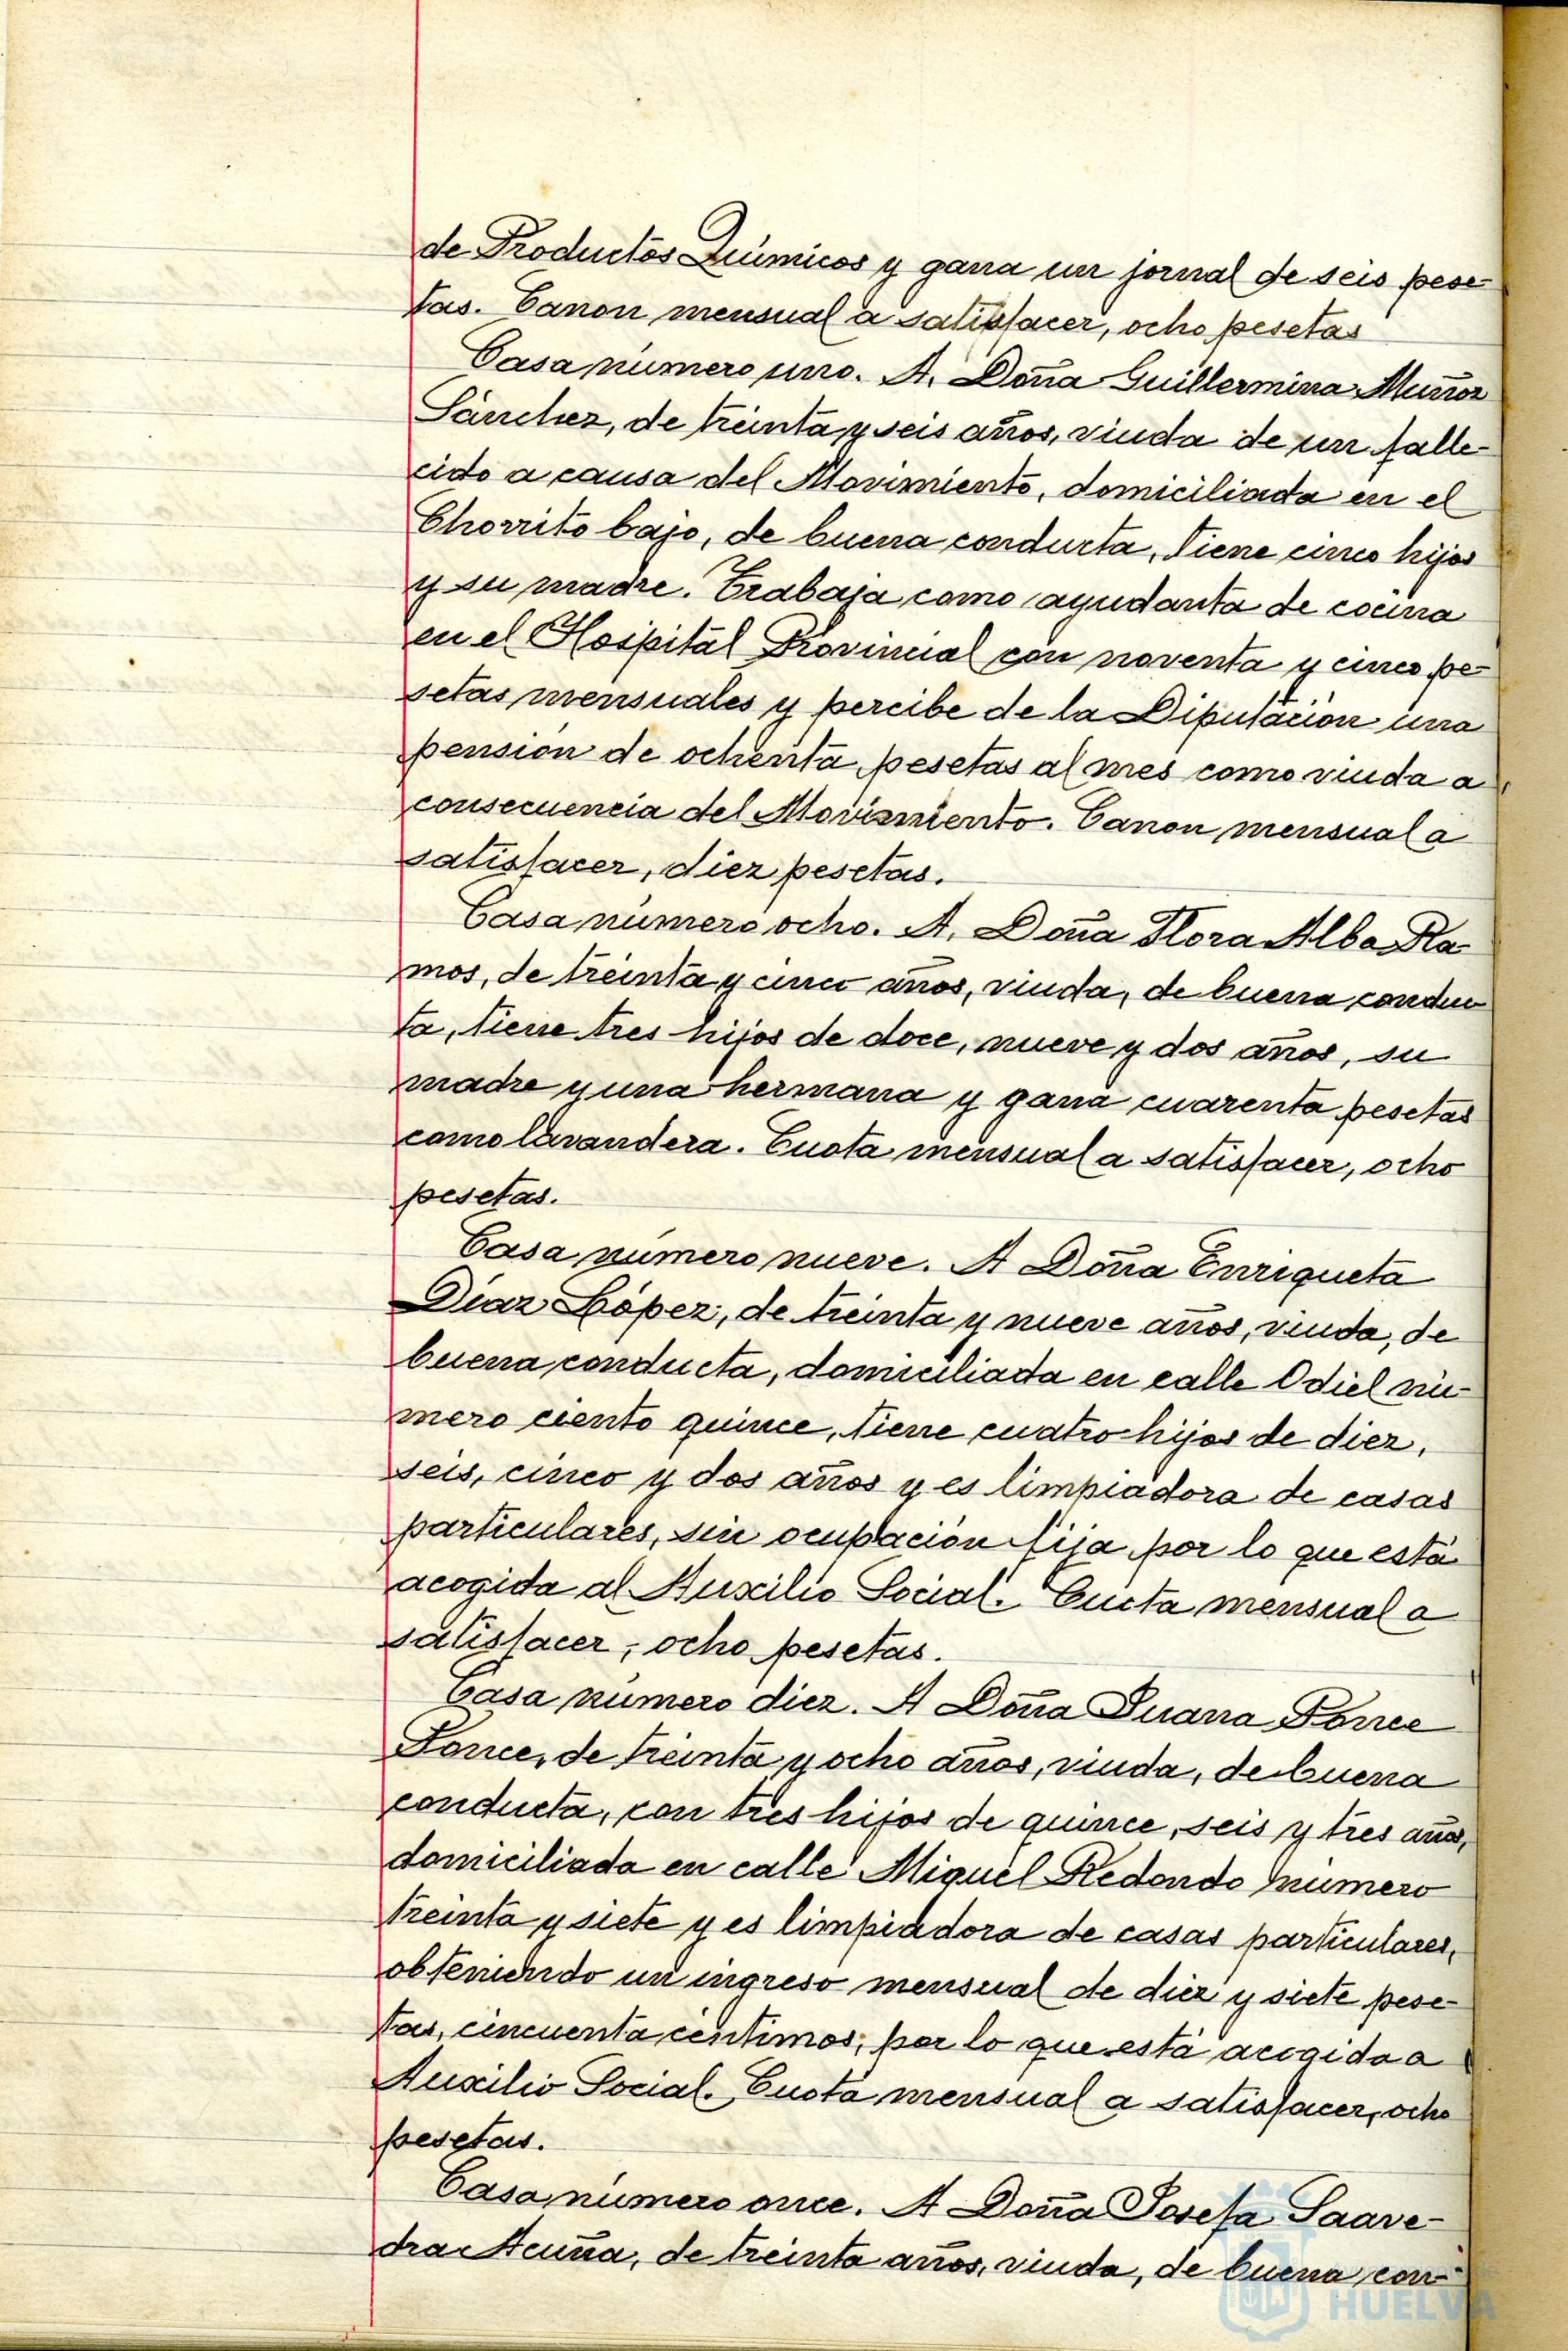 de Productos Químicos y gana un jornal de seis pese-
tas. Canon mensual a satisfacer, ocho pesetas
Casa número uno. A. Doña Guillermina Muñoz
Sánchez, de treinta y seis años, viuda de un falle-
cido a causa del Movimiento, domiciliada en el
Chorrito bajo, de buena conducta, tiene cinco hijos
y su madre. Trabaja como ayudanta de cocina
en el Hospital Provincial con noventa y cinco pe-
setas mensuales y percibe de la Diputación una
pensión de ochenta pesetas al mes como viuda a
consecuencia del Movimiento. Canon mensual a
satisfacer, diez pesetas.
Casa número ocho. A. Doña Flora Alba Ra-
mos, de treinta y cinco años, viuda, de buena conduc
ta, tiene tres hijos de doce, nueve y dos años, su
madre y una hermana y gana cuarenta pesetas
como lavandera. Cuota mensual a satisfacer, ocho
pesetas.
Casa número nueve. A Doña Enriqueta
Díaz López, de treinta y nueve años, viuda, de
buena conducta, domiciliada en calle Odiel nú-
mero ciento quince, tiene cuatro hijos de diez,
seis, cinco y dos años y es limpiadora de casas
particulares, sin ocupación fija por lo que está
acogida al Auxilio Social. Cuota mensual a
satisfacer, ocho pesetas.
Casa número diez. A Doña Juana Ponce
Ponce, de treinta y ocho años, viuda, de buena
conducta, con tres hijos de quince, seis y tres años,
domiciliada en calle Miguel Redondo número
treinta y siete y es limpiadora de casas particulares,
obteniendo un ingreso mensual de diez y siete pese-
tas, cincuenta céntimos, por lo que está acogida a
Auxilio Social. Cuota mensual a satisfacer, ocho
pesetas.
Casa número once. A Doña Josefa Saave-
dra Acuña, de treinta años, viuda, de buena con-
HUELVA